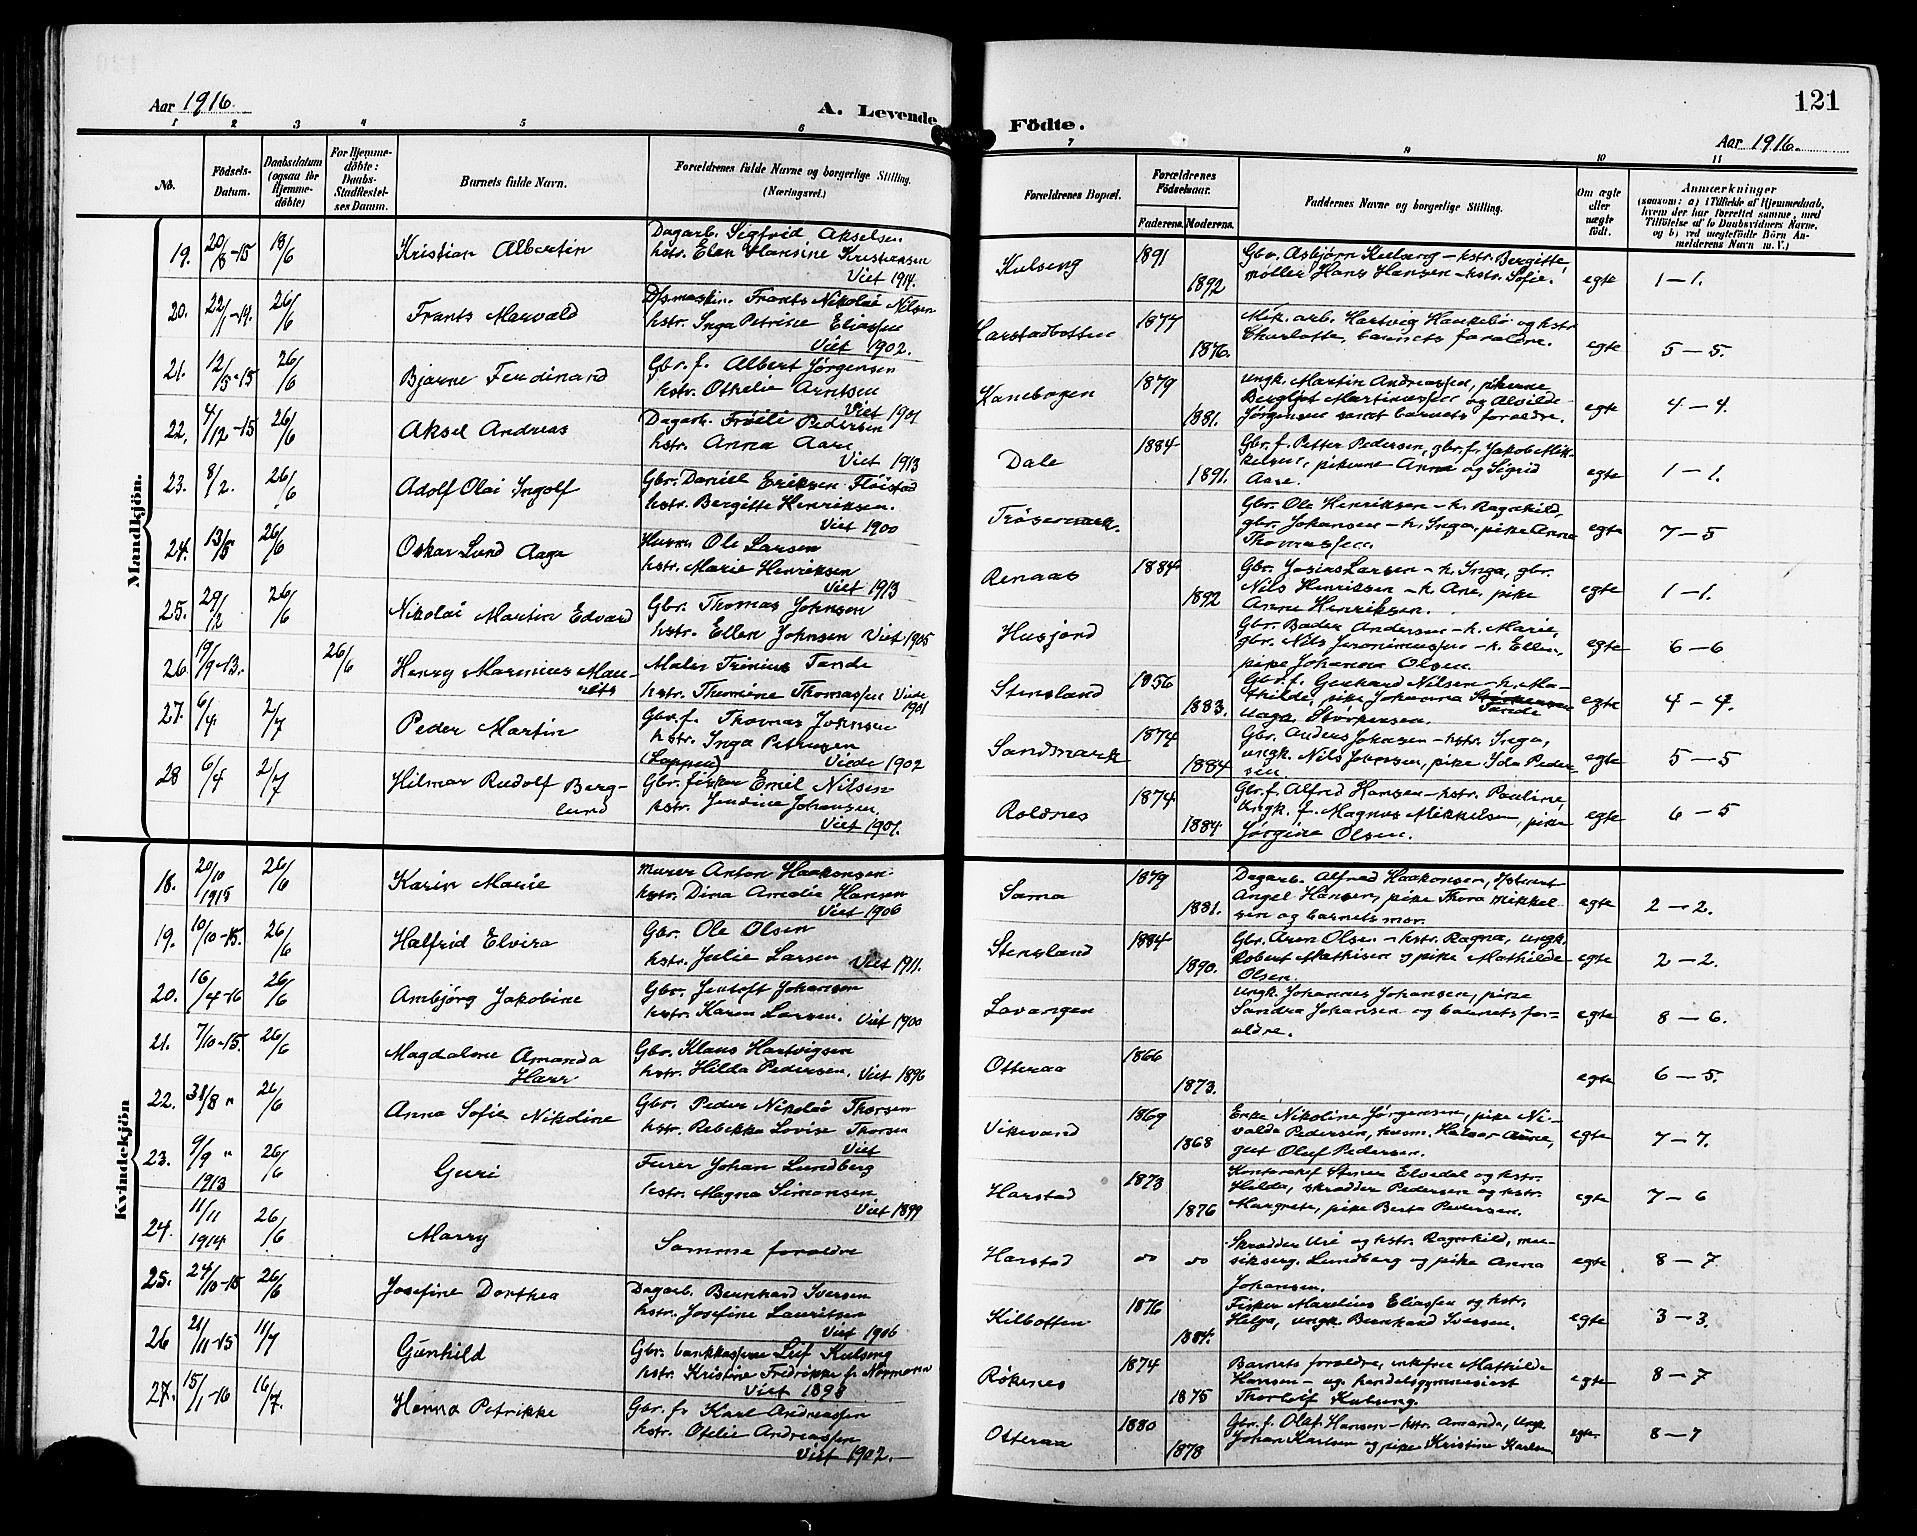 121
Aar 1916.
A. Levende Födte.
Aar 1916.
1 2 3 4 5 6 7 8 9 10 11
No.
Födsels-Datum.
Daabsdatum (ogsaa for Hjemme-döbte)
For Hjemme-döbte: Daabs-Stadfæstelses Datum.
Barnets fulde Navn.
Forældrenes fulde Navne og borgerlige Stilling. (Næringsvei.)
Forældrenes Bopæl.
Forældrenes Födselsaar.
Faderens. Moderens.
Faddernes Navne og borgerlige Stilling.
Om ægte eller uægte födt.
Anmærkninger
(saasom: a) i Tilfælde af Hjemmedaab, hvem der har forrettet samme, med Tilföielse af to Daabsvidners Navne, og b) ved uegtefödte Börn Anmelderens Navn m. V.)
Mandkjön.
19. 20/8-15 18/6 Kristian Albertin
Dagarb. Sigfrid Akselsen
hstr. Elen Hansine Kristiansen
Viet 1914.
Kulseng 1891 1892
Gbr. Asbjørn Kulseng - hstr. Bergitte,
møller Hans Hansen - hstr. Sofie.
egte 1-1.
20. 22/1-14. 26/6 Frants Marvald
Dpsmaskin. Frants Nikolai Nilsen
hstr. Inga Petrine Eliassen
Viet 1902.
Harstadbotten 1874 1876.
Mek. arb. Hartvig Haukebø og hstr
Charlotte, barnets forældre.
egte 5-5.
21. 12/5-15 26/6 Bjarne Ferdinand
Gbr. f. Albert Jørgensen
hstr. Othelie Arntsen
Viet 1901
Kanebogen 1879 1881.
ungk. Martin Andreassen, pikerne
Bergljot Martinussen og Alvilde
Jørgensen samt barnets foreldre.
egte 4-4.
22. 4/12-15 26/6 Aksel Andreas
Dagarb. Frøili Pedersen
hstr. Anna Aare
Viet 1913
Dale 1884 1891.
Gbr. f. Petter Pedersen, gbr. f. Jakob Mik-
kelsen, pikerne Anna og Sigrid
Aare.
egte 1-1.
23. 8/2. 26/6 Adolf Olai Ingolf
Gbr. Daniel Eriksen Fløistad
hstr. Bergitte Henriksen.
Viet 1900
Trøsemark.
Gbr. Ole Henriksen - h. Ragnhild,
gbr. Johansen - h. Inga, pike Anne
Thomassen.
egte 7-5
24. 13/5 26/6 Oskar Lund Aage
Husm. Ole Larsen
hstr. Marie Henriksen
Viet 1913
Renaas 1884 1892
Gbr. Josias Larsen - h. Inga, gbr.
Nils Henriksen - h. Ane, pike
Anne Henriksen.
egte 1-1.
25. 29/2 26/6 Nikolai Martin Edvard
Gbr. Thomas Johnsen
hstr. Ellen Johnsen Viet 1905
Husjord
Gbr. Bader Andersen - h. Marie,
gbr. Nils Jeronimussen - h. Ellen,
pike Johanna Olsen.
egte 6-6
26. 19/9-13. 26/6 Henry Marinius Mau-
ritz
Maler Trinius Tande
hstr. Thomine Thomassen Viede
1901
Stensland 1856 1883.
Gbr. f. Gerhard Nilsen - h. Ma-
thilde, pike Johanna Tande
Storkersen.
egte 4-4.
27. 6/4 2/7 Peder Martin
Gbr. f. Thomas Johnsen
hstr. Inga Petersen
(Lapper) Viede 1902
Sandmark 1874 1884
Gbr. Anders Johnsen - hstr. Inga,
ungk. Nils Johnsen, pike Ida Peder-
sen
egte 5-5
28 6/4 2/7 Hilmar Rudolf Berg-
lund
Gbr. fisker Emil Nilsen
hstr. Jendine Johansen
Viet 1901.
Roldnes 1874 1884.
Gbr. f. Alfred Hansen - hstr. Pauline,
ungk. f. Magnus Mikkelsen, pike
Jørgine Olsen.
egte 6-5
Kvindekjön
18. 20/10 1915 26/6 Karin Marie
Murer Anton Haakonsen
hstr. Dina Amalie Hansen
Viet 1906
Sama 1879 1881.
Dagarb. Alfred Haakonsen,
Angel Hansen, pike Thora Mikkel-
sen og barnets mor.
egte 2-2.
19. 10/10-15. 26/6 Halfrid Elvira
Gbr. Ole Olsen
hstr. Julie Larsen Viet 1911.
Stensland 1884 1890.
Gbr. Aron Olsen - hstr. Ragna, ungk.
Robert Mathisen og pike Mathilde
Olsen.
egte 2-2.
20. 16/4-16 26/6 Arnbjørg Jakobine
Gbr. Jentoft Johansen
hstr. Karen Larsen. Viet 1900
Lavangen
ungk. Johannes Johansen, pike
Sandra Johansen og barnets for-
ældre.
egte 8-6.
21. 7/10-15. 26/6 Magdalene Amanda
Harr
Gbr. Klaus Hartvigsen
hstr. Hilda Pedersen. Viet 1896
Otteraa 1866 1873.
egte 6-5.
22. 31/8 " 26/6 Anna Sofie Nikoline
Gbr. Peder Nikolai Thorsen
hstr. Rebekka Lovise Thorsen
Viet
Vikevand 1869 1868
Enke Nikoline Jørgensen, pike Ni-
valda Pedersen, husm. Halvor Aune,
gut Oluf Pedersen.
egte 7-7.
23. 9/9 " 1913 26/6 Guri
Furer Johan Lundberg
hstr. Magna Simonsen
Viet 1899
Harstad 1873 1876
Kontorchef Steiner Elvedal og hstr.
Hilda, skrædder Pedersen og hstr.
Margrete, pike Berta Pedersen.
egte 7-6
24. 11/11 1914 26/6 Marry
Samme forældre
Harstad do do
Skrædder Uri og hstr. Ragnhild, mu-
sikserg. Lundberg og pike Anna
Johansen.
egte 8-7
25. 24/10-15 26/6 Josefine Dorthea
Dagarb. Bernhard Iversen
hstr. Josefine Lauritsen
Viet 1906
Kilbotten 1876 1884.
Fisker Marelius Eliassen og hstr.
Helga, ungk Bernhard Iversen.
egte 3-3.
26 21/11-15 11/7 Gunhild
Gbr. bankkasserer Leif Kulseng
hstr. Kristine Fredrikke f. Normann
Viet 1898
Røkenes 1874 1875
Barnets forældre, enkefrue Mathilde
Hansen - og handelsgymnasiast
Thorleif Kulseng.
egte 8-7
27. 15/1-16 16/7. Hanna Petrikke
Gbr. f. Karl Andreassen
hstr. Ofelie Andreassen
Viet 1902.
Otteraa 1880 1878
Gbr. f. Olaf Hansen - hstr. Amanda, ungk
Johan Karlsen og pike Kristine Karlsen
egte 8-7